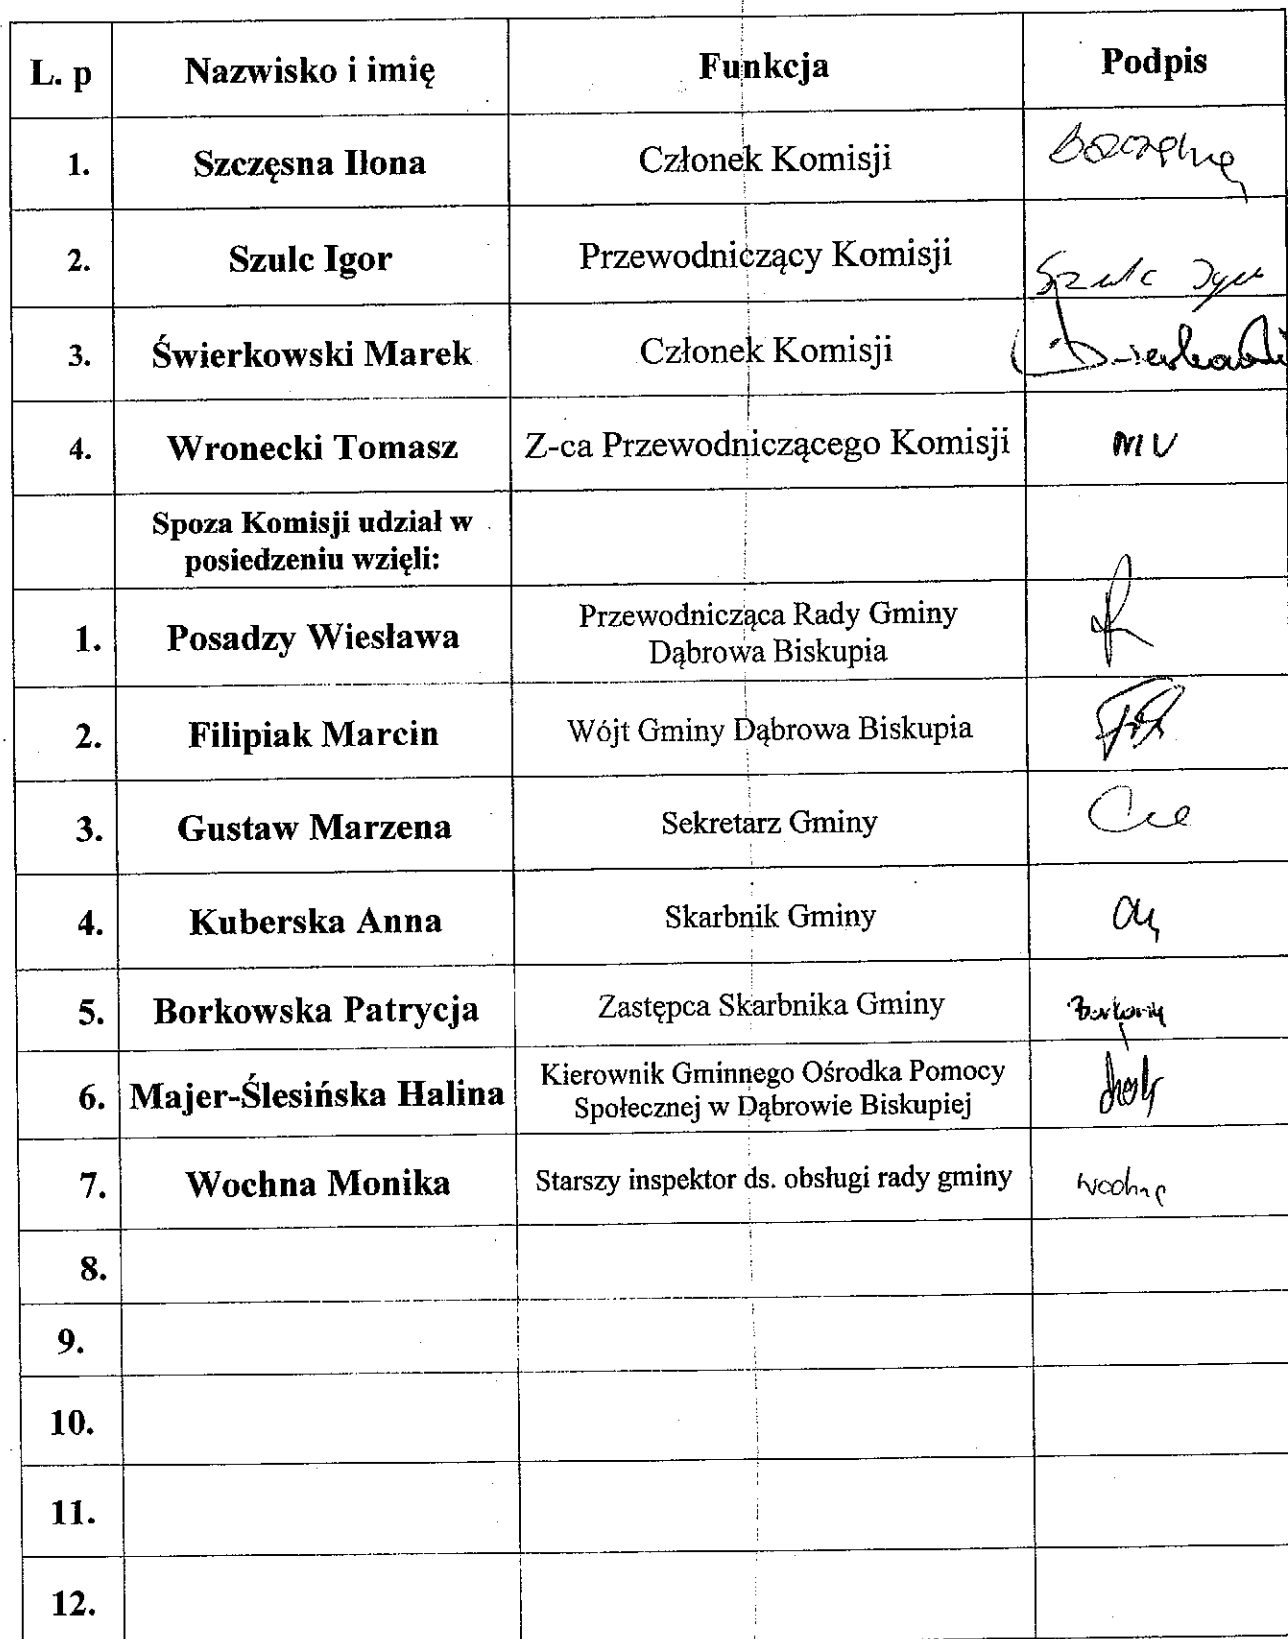 L. p Nazwisko i imię Funkcja Podpis
1. Szczęsna Ilona Członek Komisji
2. Szulc Igor Przewodniczący Komisji Szulc Igor
3. Świerkowski Marek Członek Komisji
4. Wronecki Tomasz Z-ca Przewodniczącego Komisji
Spoza Komisji udział w
posiedzeniu wzięli:
1. Posadzy Wiesława Przewodnicząca Rady Gminy
Dąbrowa Biskupia
2. Filipiak Marcin Wójt Gminy Dąbrowa Biskupia
3. Gustaw Marzena Sekretarz Gminy
4. Kuberska Anna Skarbnik Gminy
5. Borkowska Patrycja Zastępca Skarbnika Gminy
6. Majer-Ślesińska Halina Kierownik Gminnego Ośrodka Pomocy
Społecznej w Dąbrowie Biskupiej
7. Wochna Monika Starszy inspektor ds. obsługi rady gminy
8.
9.
10.
11.
12.